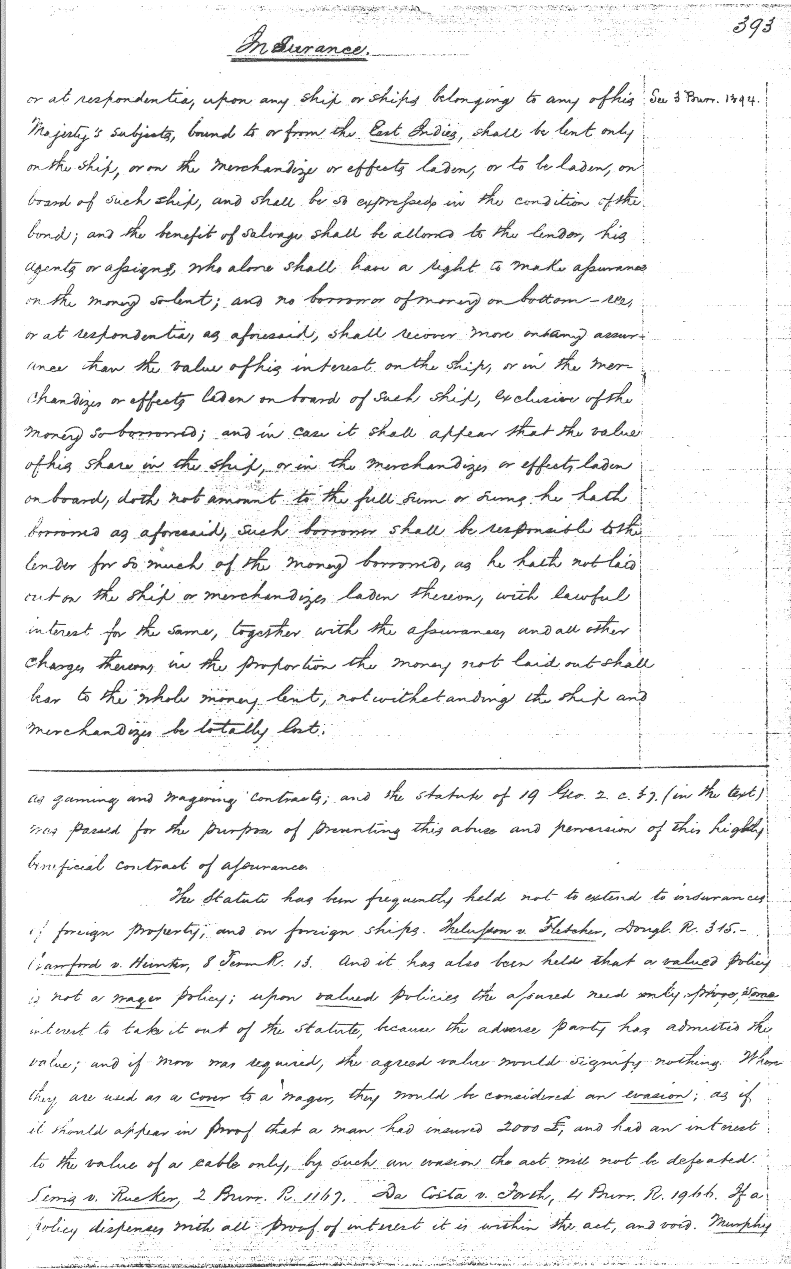 393
Insurance.
or at respondentia, upon any ship or ships belonging to any of his
See 3 Burr. 1394.
Majesty's subjects, bound to or from the East Indies, shall be lent only
on the ship, or on the merchandize or effects laden, or to be laden, on
board of such ship, and shall be so expressed in the condition of the
bond; and the benefit of salvage shall be allowed to the lender, his
agents or assigns, who alone shall have a right to make assurance
on the money so lent; and no borrower of money on bottom-
or at respondentia, as aforesaid, shall recover more on any assur-
ance than the value of his interest on the ship, or in the mer-
chandizes or effects laden on board of such ship, exclusive of the
money so borrowed; and in case it shall appear that the value
of his share in the ship, or in the merchandizes or effects laden
on board, doth not amount to the full sum or sums he hath
borrowed as aforesaid, such borrower shall be responsible to the
lender for so much of the money borrowed, as he hath not laid
out on the ship or merchandizes laden thereon, with lawful
interest for the same, together with the assurance, and all other
charges thereon, in the proportion the money not laid out shall
bear to the whole money lent, notwithstanding the ship and
merchandizes be totally lost.
as gaming and wagering contracts; and the statute of 19 Geo. 2. c. 37. (in the text)
was passed for the purpose of preventing this abuse and perversion of this highly
beneficial contract of assurance.
The statute has been frequently held not to extend to insurances
of foreign property, and on foreign ships. Thelusson v. Fletcher, Dougl. R. 315.-
Crawford v. Hunter, 8 Term R. 13. And it has also been held that a valued policy
is not a wager policy; upon valued policies the assured need only prove some
interest to take it out of the statute, because the adverse party has admitted the
value; and if more was required, the agreed value would signify nothing. When
they are used as a cover to a wager, they would be considered an evasion; as if
it should appear in proof that a man had insured 2000 £, and had an interest
to the value of a cable only, by such an evasion the act will not be defeated.
v. Rucker, 2 Burr. R. 1167. Da Costa v. Forth, 4 Burr. R. 1966. If a
policy dispenses with all proof of interest it is within the act, and void. Murphy